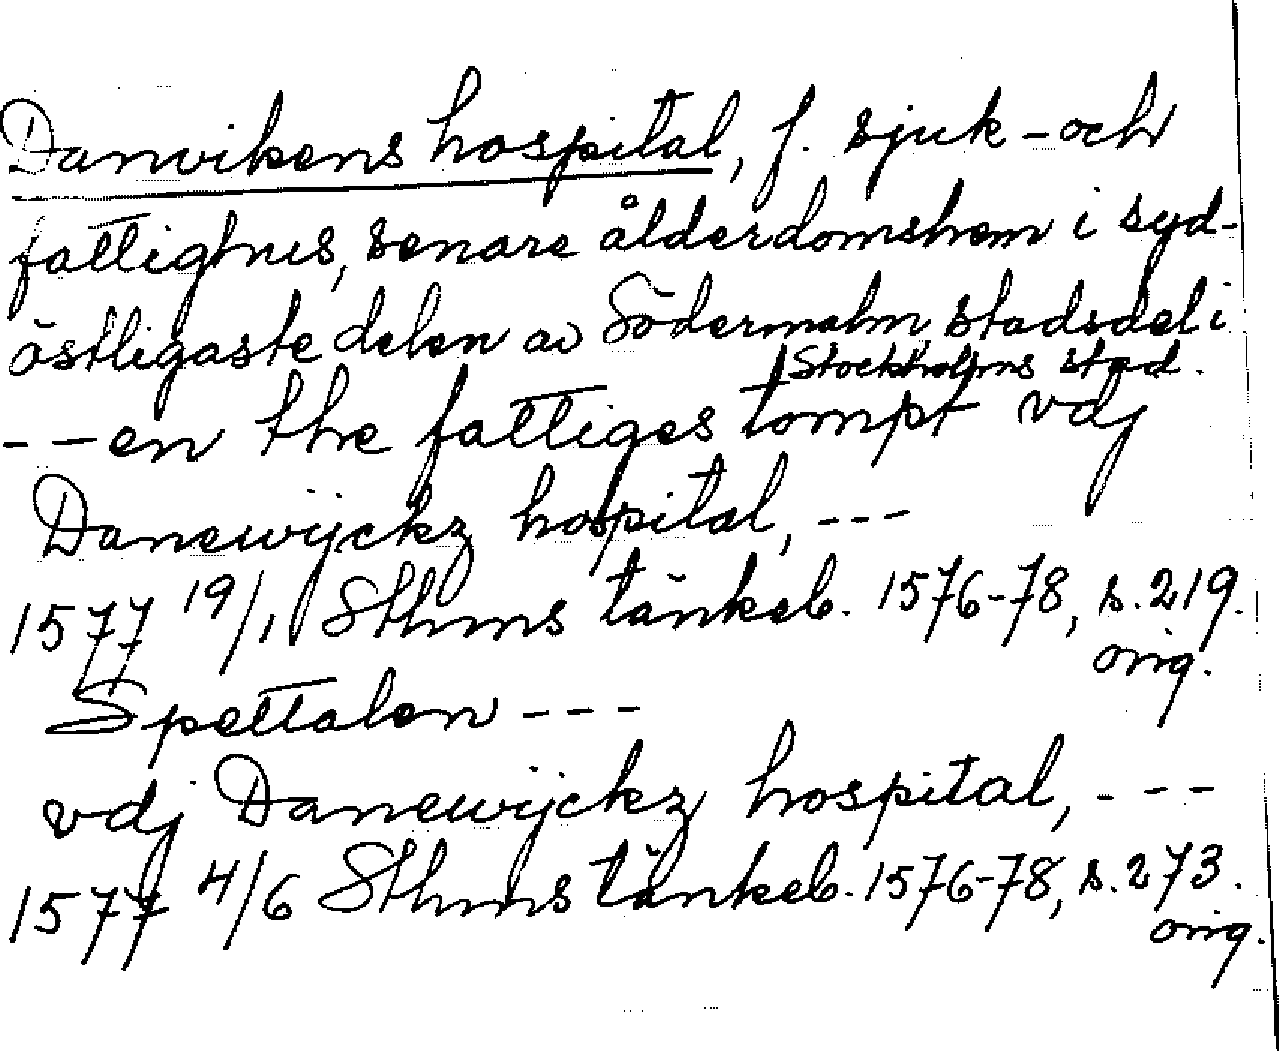 Danvikens hospital, f. sjuk- och
fattighus, senare ålderdomshem i syd-
östligaste delen av Södermalm, stadsdel i
Stockholms stad.
- - en the fattiges tompt vdj
Danewijckz hospital, - - -
1577 19/1 Sthms tänkeb. 1576-78, s. 219.
orig.
Spettalen - - -
vdj Danewijckz hospital, - - -
1577 4/6 Sthms tänkeb. 1576-78, s. 273.
orig.